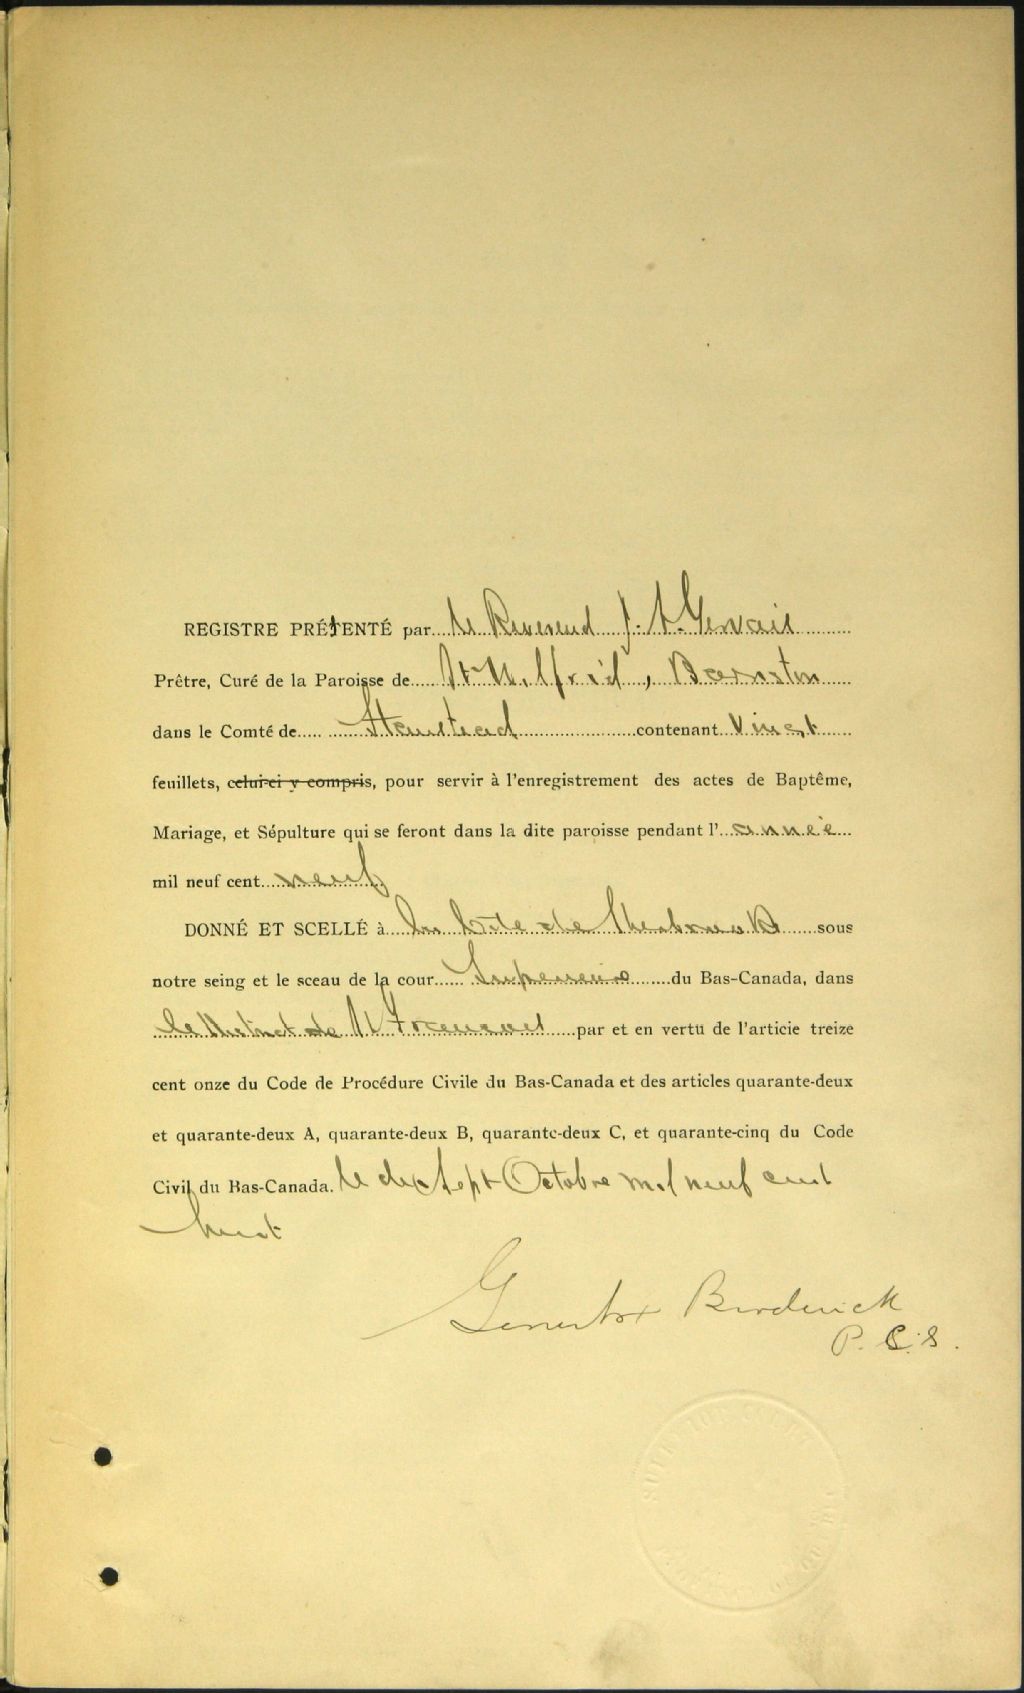 REGISTRE PRÉSENTÉ par le Reverend J. A. Gervais
Prêtre, Curé de la Paroisse de St Wilfrid, Barnston
dans le Comté de Stanstead contenant Vingt
feuillets, celui-ci y compris, pour servir à l'enregistrement des actes de Baptême,
Mariage, et Sépulture qui se feront dans la dite paroisse pendant l'année
mil neuf cent neuf
DONNÉ ET SCELLÉ à la Cité de Sherbrooke sous
notre seing et le sceau de la cour Superieure du Bas-Canada, dans
le District de St Francois par et en vertu de l'article treize
cent onze du Code de Procédure Civile du Bas-Canada et des articles quarante-deux
et quarante-deux A, quarante-deux B, quarante-deux C, et quarante-cinq du Code
Civil du Bas-Canada. le dix Sept Octobre mil neuf cent
huit
Broderick
P. C. S.
SUPERIOR COURT